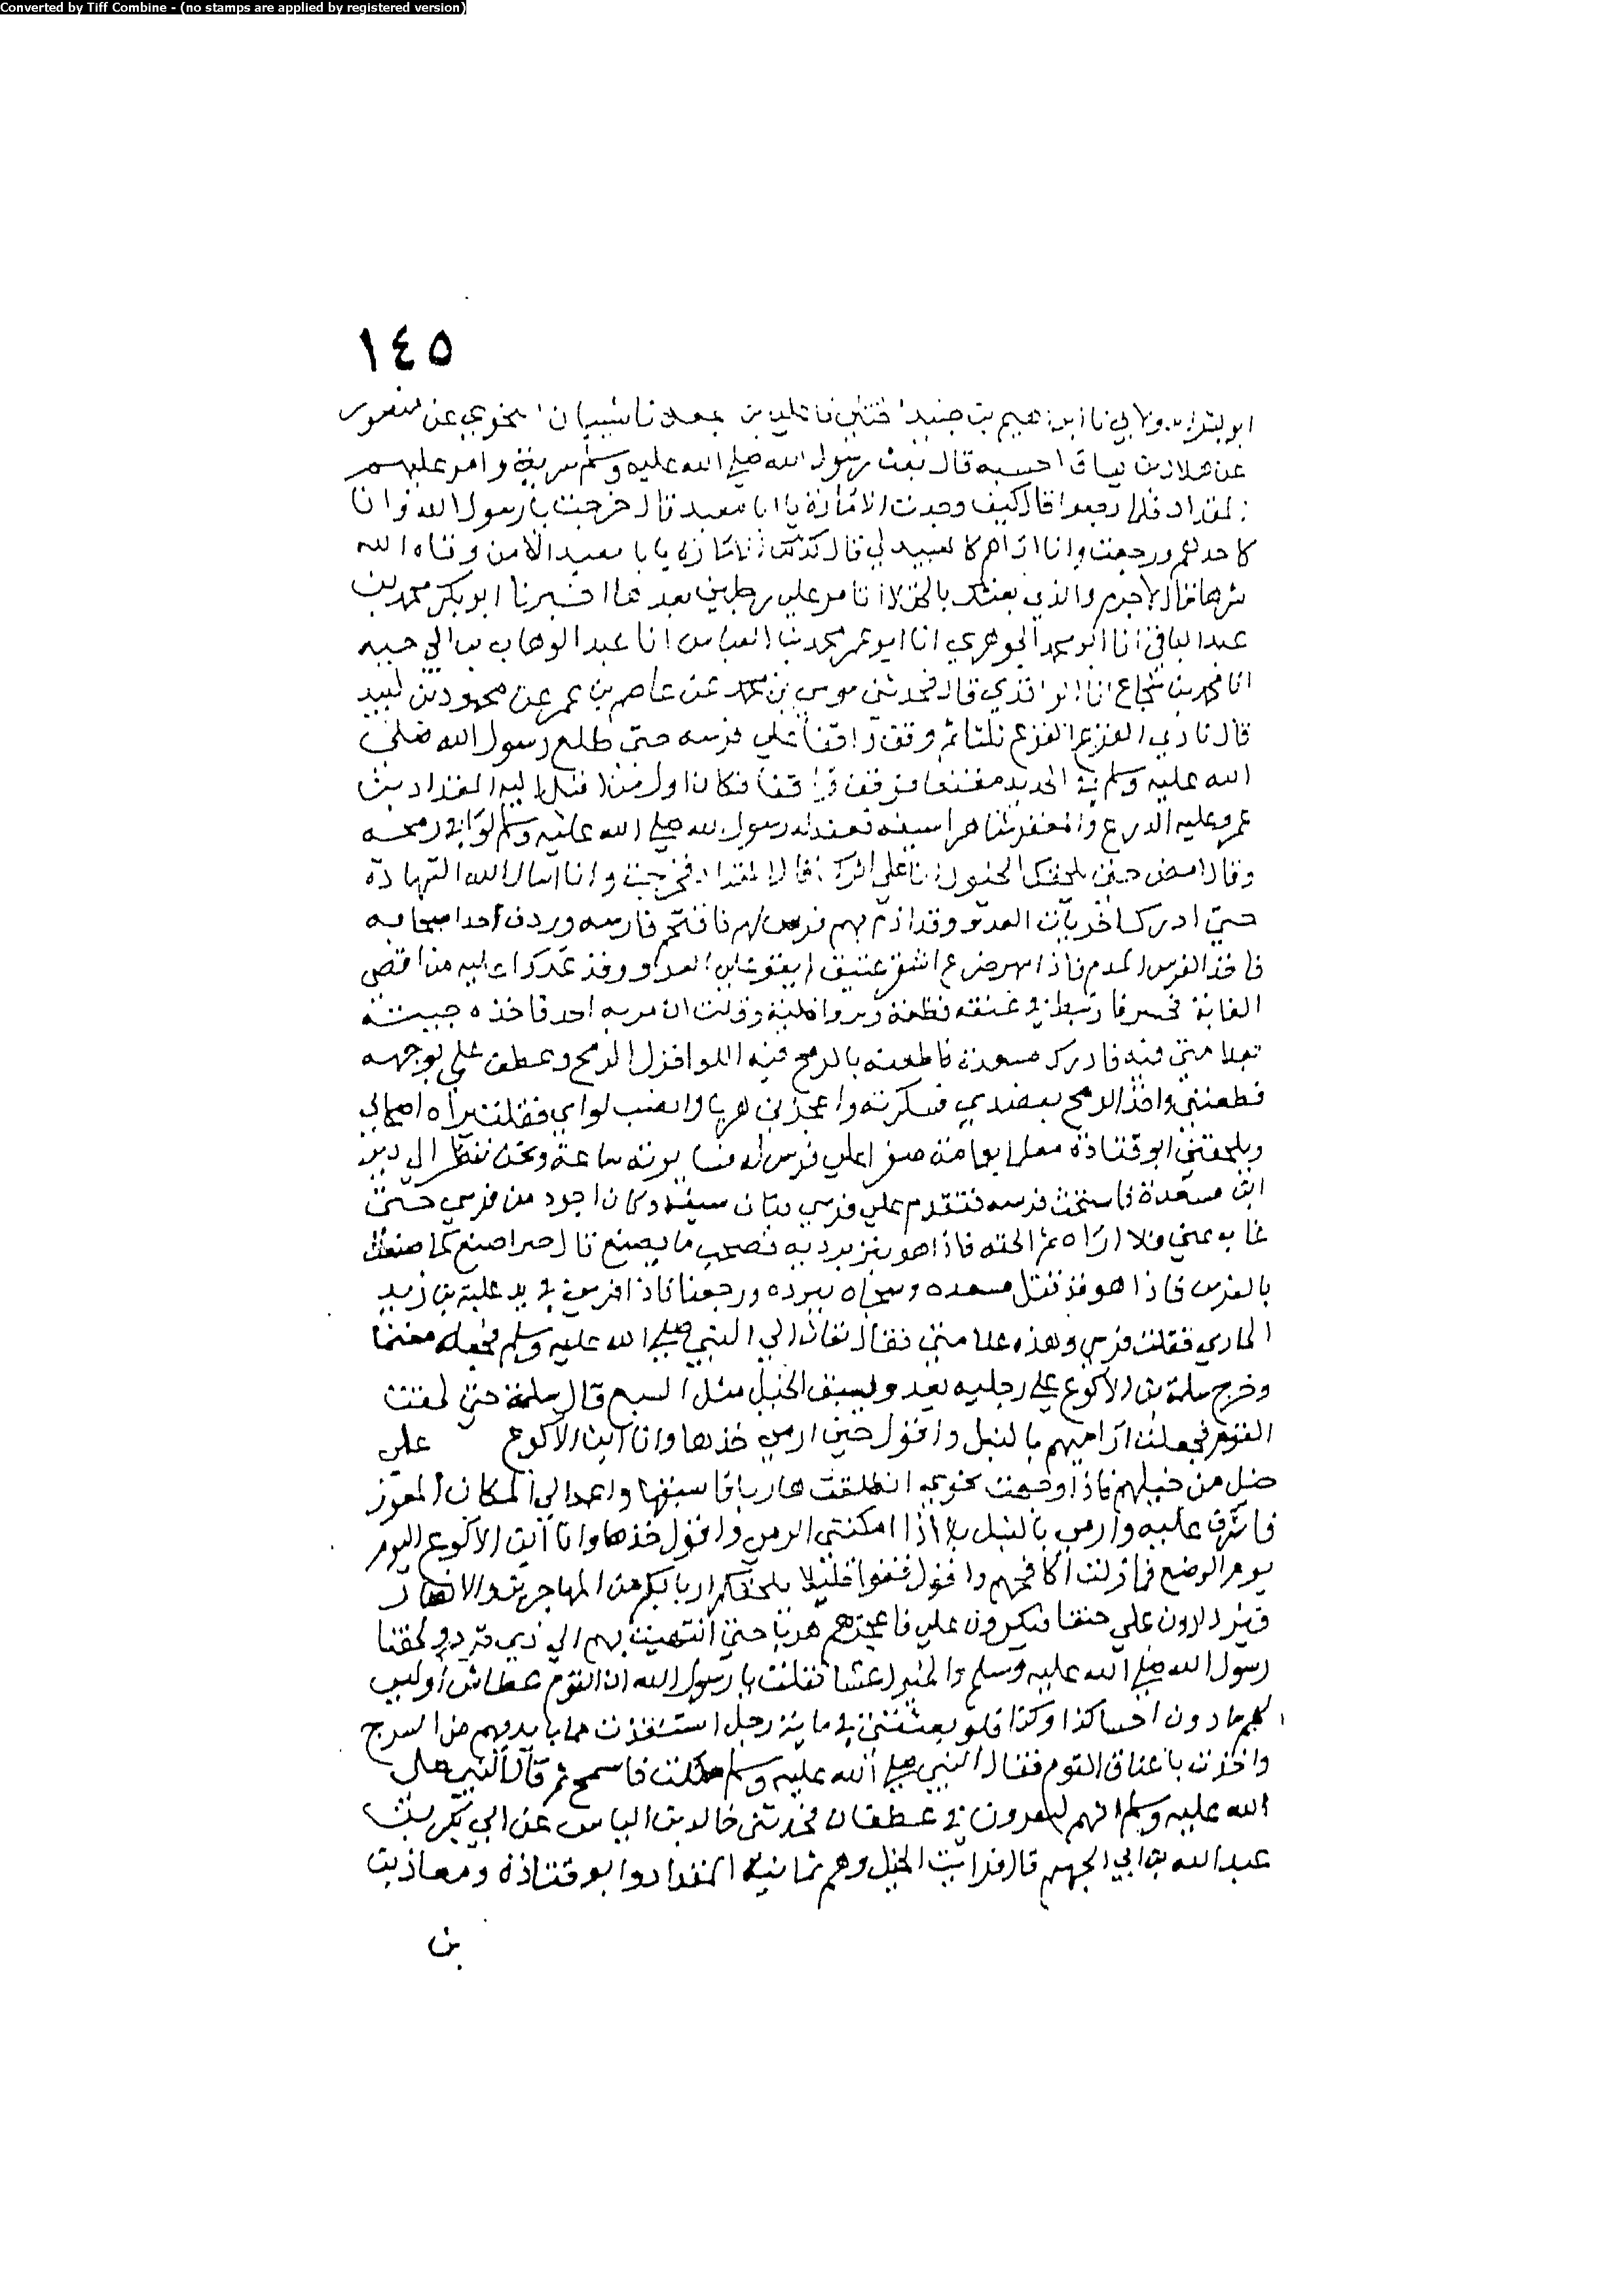 Converted by Tiff Combine - (no stamps are applied by registered version)
١٤٥
ابو بشر الدولابي نا ابراهيم بن جنيد الختلي نا علي بن الجعد نا شيبان النحوي عن منصور
عن هلال بن يساف احسبه قال بعث رسول الله صلى الله عليه وسلم سرية وامر عليهم
المقداد فلما رجعوا قال كيف وجدت الامارة يا ابا معبد قال خرجت يا رسول الله وانا
كاحدهم ورجعت وانا اراهم كالعبيد لي قال كذلك الامارة يا با معبد الا من وقاه الله
شرها قال لا جرم والذي بعثك بالحق لا اتامر على رجلين بعدها اخبرنا ابو بكر محمد بن
عبد الباقي انا ابو محمد الجوهري انا ابو عمر محمد بن العباس انا عبد الوهاب بن ابي حيه
انا محمد بن شجاع انا الواقدي قال فحدثني موسى بن محمد عن عاصم بن عمر عن محمود بن لبيد
قال نادى الفزع الفزع ثلثا ثم وقف واقفا على فرسه حتى طلع رسول الله صلى
الله عليه وسلم في الحديد مقنعا فوقف واقفا فكان اول من اقبل اليه المقداد بن
عمرو عليه الدرع والمغفر شاهرا سيفه فعقد له رسول الله صلى الله عليه وسلم لواء في رمحه
وقال امض حتى تلحقك الخيول انا على اثرك قال المقداد فخرجت وانا اسال الله الشهادة
حتى ادرك اخريات العدو وقد اذم بهم فرس لهم فاقتحم فارسه وردف احد اصحابه
فاخذ الفرس المذم فاذا مهر ضرع اشقر عتيق لم يقو على العدو وقد غدوا عليه من اقصى
الغابة فحسر فارتبط في عنقه قطعة وتر واخليه وقلت ان مر به احد فاخذه جيته
بعلامتي فيه فادرك مسعدة فاطعنه بالرمح فيه اللوا فزل الرمح وعطف علي بوجهه
فطعنني واخذ الرمح بعضدي فكسرته واعجزني هربا وانصب لواي فقلت يراه اصحابي
ويلحقني ابو قتادة معلما بعمامة صفرا على فرس له فسايرته ساعة ونحن ننظر الى دبر
ابن مسعدة فاستحث فرسه فتقدم على فرسي فبان سبقه وكان اجود من فرسي حتى
غاب عني فلا اراه ثم الحقه فاذا هو ينزع برديه فصحت ما يصنع قال خيرا اصنع كما صنعت
بالفرس فاذا هو قد قتل مسعده وسجاه ببرده ورجعنا فاذا فرس في يد علبة بن زيد
الحارثي فقلت فرسي وهذه علامتي فقال تعال الى النبي صلى الله عليه وسلم فجعله مغنما
وخرج سلمة بن الاكوع على رجليه يعدو ليسبق الخيل مثل السبع قال سلمة حتى لحقت
القوم فجعلت اراميهم بالنبل واقول حين ارمي خذها وانا ابن الاكوع على
خيل من خيلهم فاذا وجهت نحوي انطلقت هاربا فاسبقها واعمد الى المكان المعور
فاشرف عليه وارمي بالنبل اذا امكنني الرمي واقول خذها وانا ابن الاكوع اليوم
يوم الرضع فما زلت اكافحهم واقول قفوا قليلا يلحقكم اربابكم من المهاجرين والانصار
فيزدادون علي حنقا فيكرون علي فاعجزهم هربا حتى انتهيت بهم الى ذي قرد ولحقنا
رسول الله صلى الله عليه وسلم والخيول عشا فقلت يا رسول الله ان القوم عطاش وليس
لهم ما دون احسا كذا وكذا فلو بعثتني في ماية رجل استنقذت ما بايديهم من السرح
واخذت باعناق القوم فقال النبي صلى الله عليه وسلم ملكت فاسجح ثم قال النبي صلى
الله عليه وسلم انهم ليقرون في غطفان فحدثني خالد بن الياس عن ابي بكر بن
عبد الله بن ابي الجهم قال فراتت الخيل وهم ثمانية المقداد وابو قتادة ومعاذ بن
بن